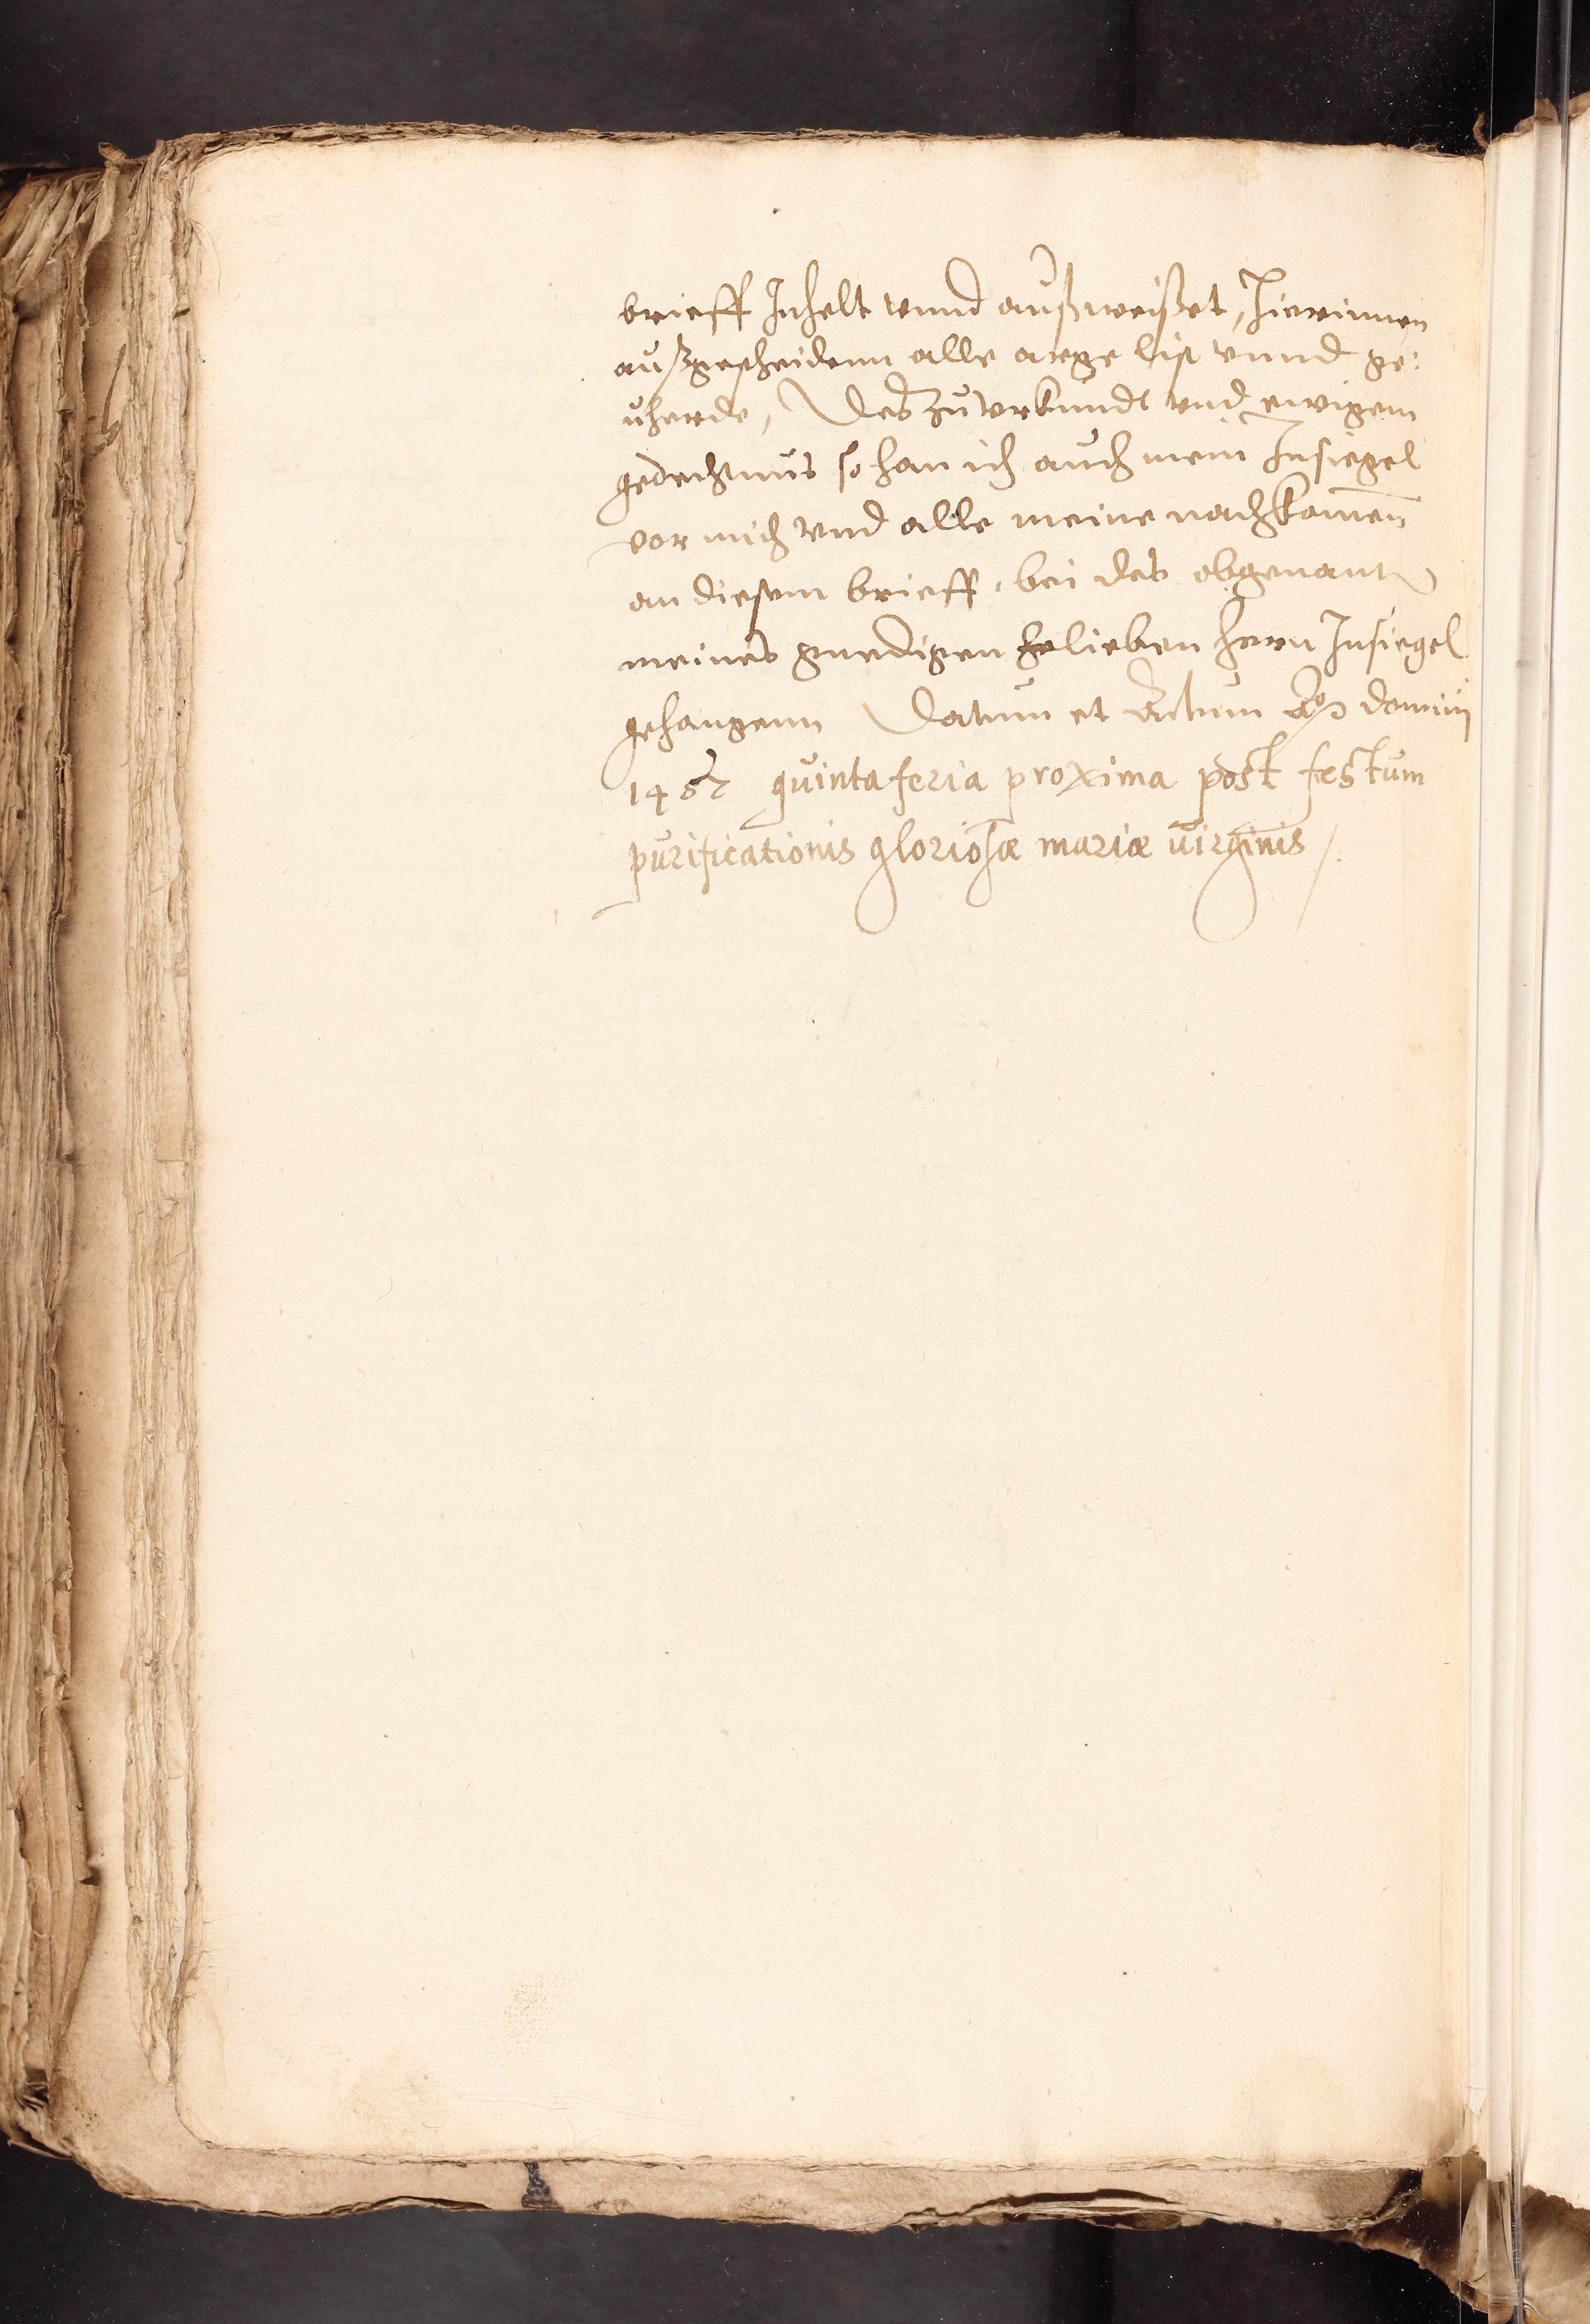 brieff Inhelt vnnd außweißet, Hierinnen
außgescheidenn alle arge list vnnd ge:
uherde, Des zu vrkundt vnd ewigem
gedechtnus so han ich auch mein Insiegel
vor mich vnd alle meine nachkomen̄
an diesem brieff, bei des obgenant
meines gnedigen lieben hern Insiegel
gehangenn Datum et Actum Aō domini
quinta feria proxima post festum
purificationis gloriosæ mariæ uirginis /.